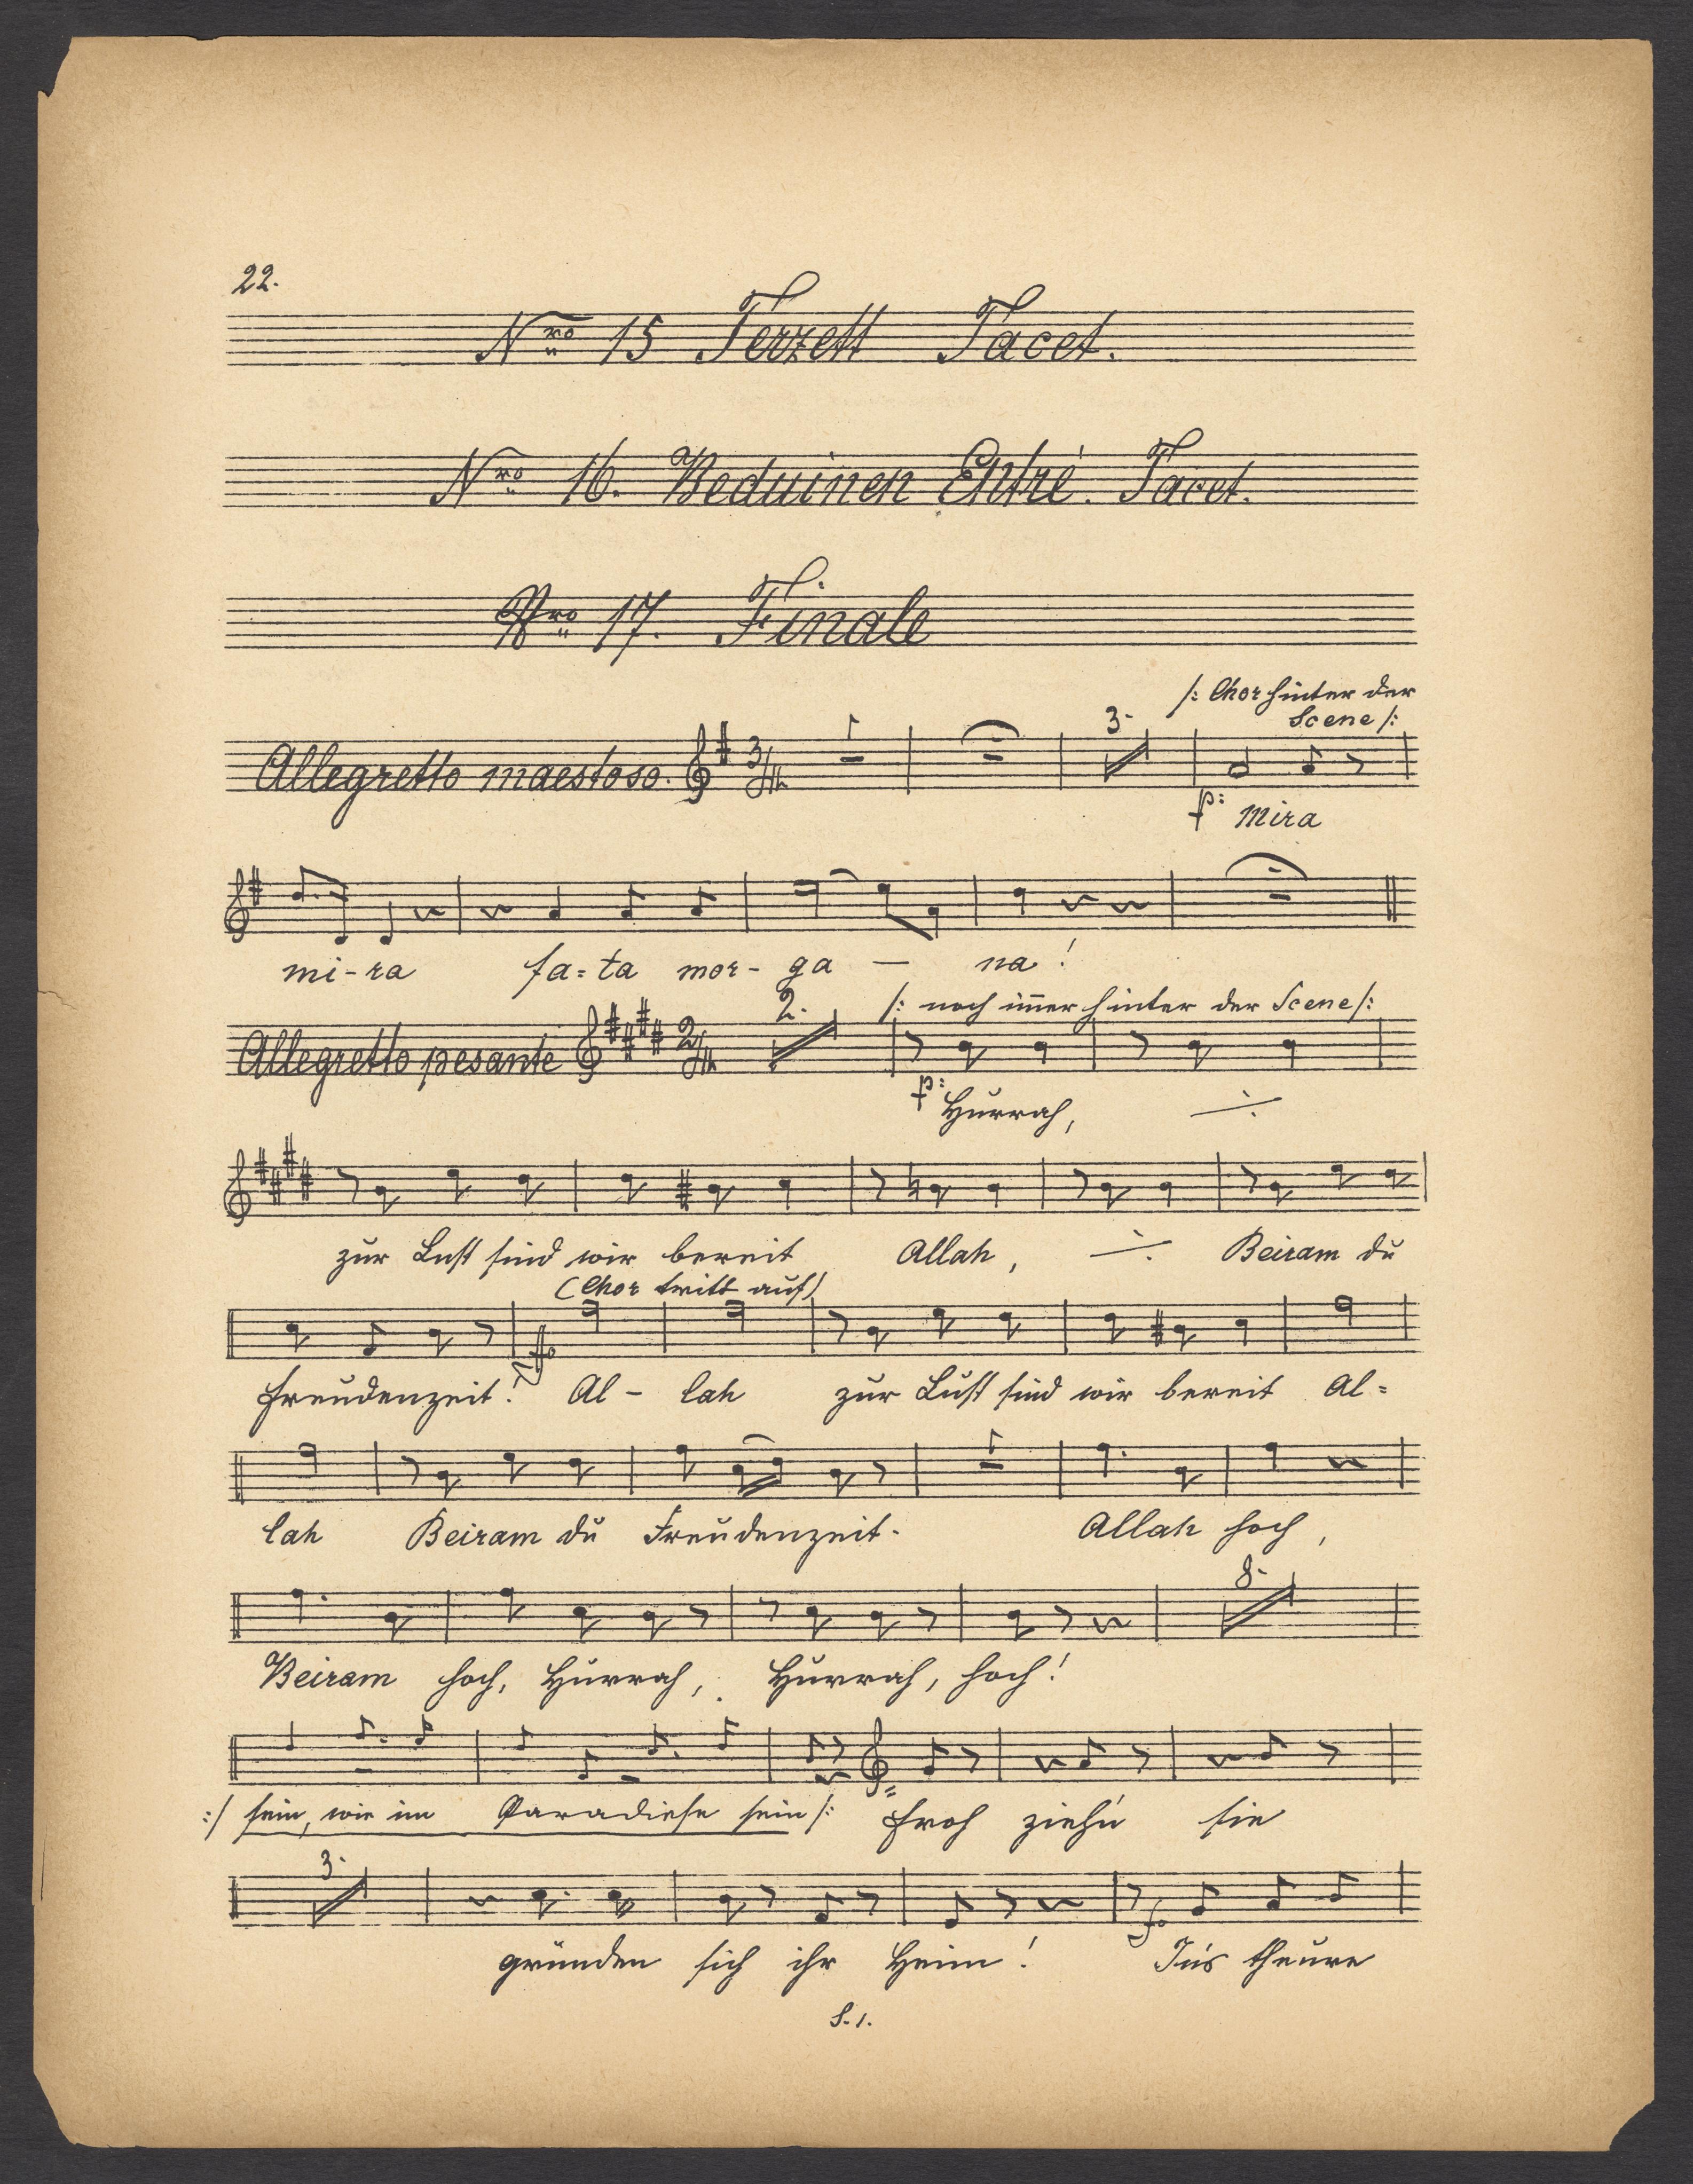 22.
Nro 15 Terzett Tacet.
Nro 16. Beduinen Entré. Tacet.
Nro 17. Finale
/: Chor hinter der
Scene /:
3.
Allegretto maestoso. 3/4
p: Mira
mi-ra fa=ta mor- ga — na!
2. /: noch im̅er hinter der Scene /:
Allegretto pesante 2/4
p: Hurrah,
zur Lust sind wir bereit Allah, Beiram du
(Chor tritt auf)
Freudenzeit! Al - lah zur Lust sind wir bereit Al=
lah Beiram du Freudenzeit. Allah hoch,
8.
Beiram hoch, Hurrah, Hurrah, hoch!
:/ sein, wie im Paradiese sein /: Froh zieh'n sie
3.
gründen sich ihr Heim! In's theure
S. 1.